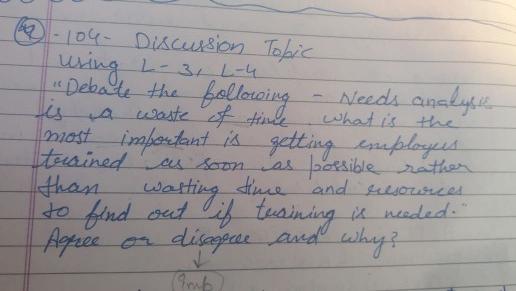 Q9 -104- Discussion Topic
using L-3, L-4
"Debate the following - Needs analysis
is a waste of time. what is the
most important is getting employees
trained as soon as possible rather
than wasting time and resources
to find out if training is needed."
Agree or disagree and why?
↓
Imp